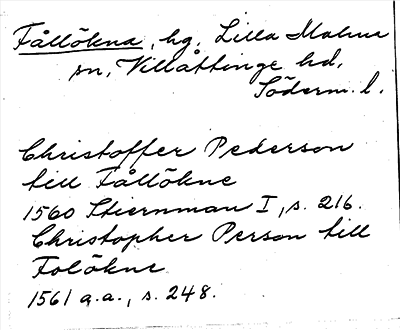 Fållökna, hg, Lilla Malma
sn, Villåttinge hd,
Söderm. l.
Christoffer Pederson
till Fållökne
1560 Stiernman I, s. 216.
Christopher Person till
Folökne
1561 a.a., s. 248.